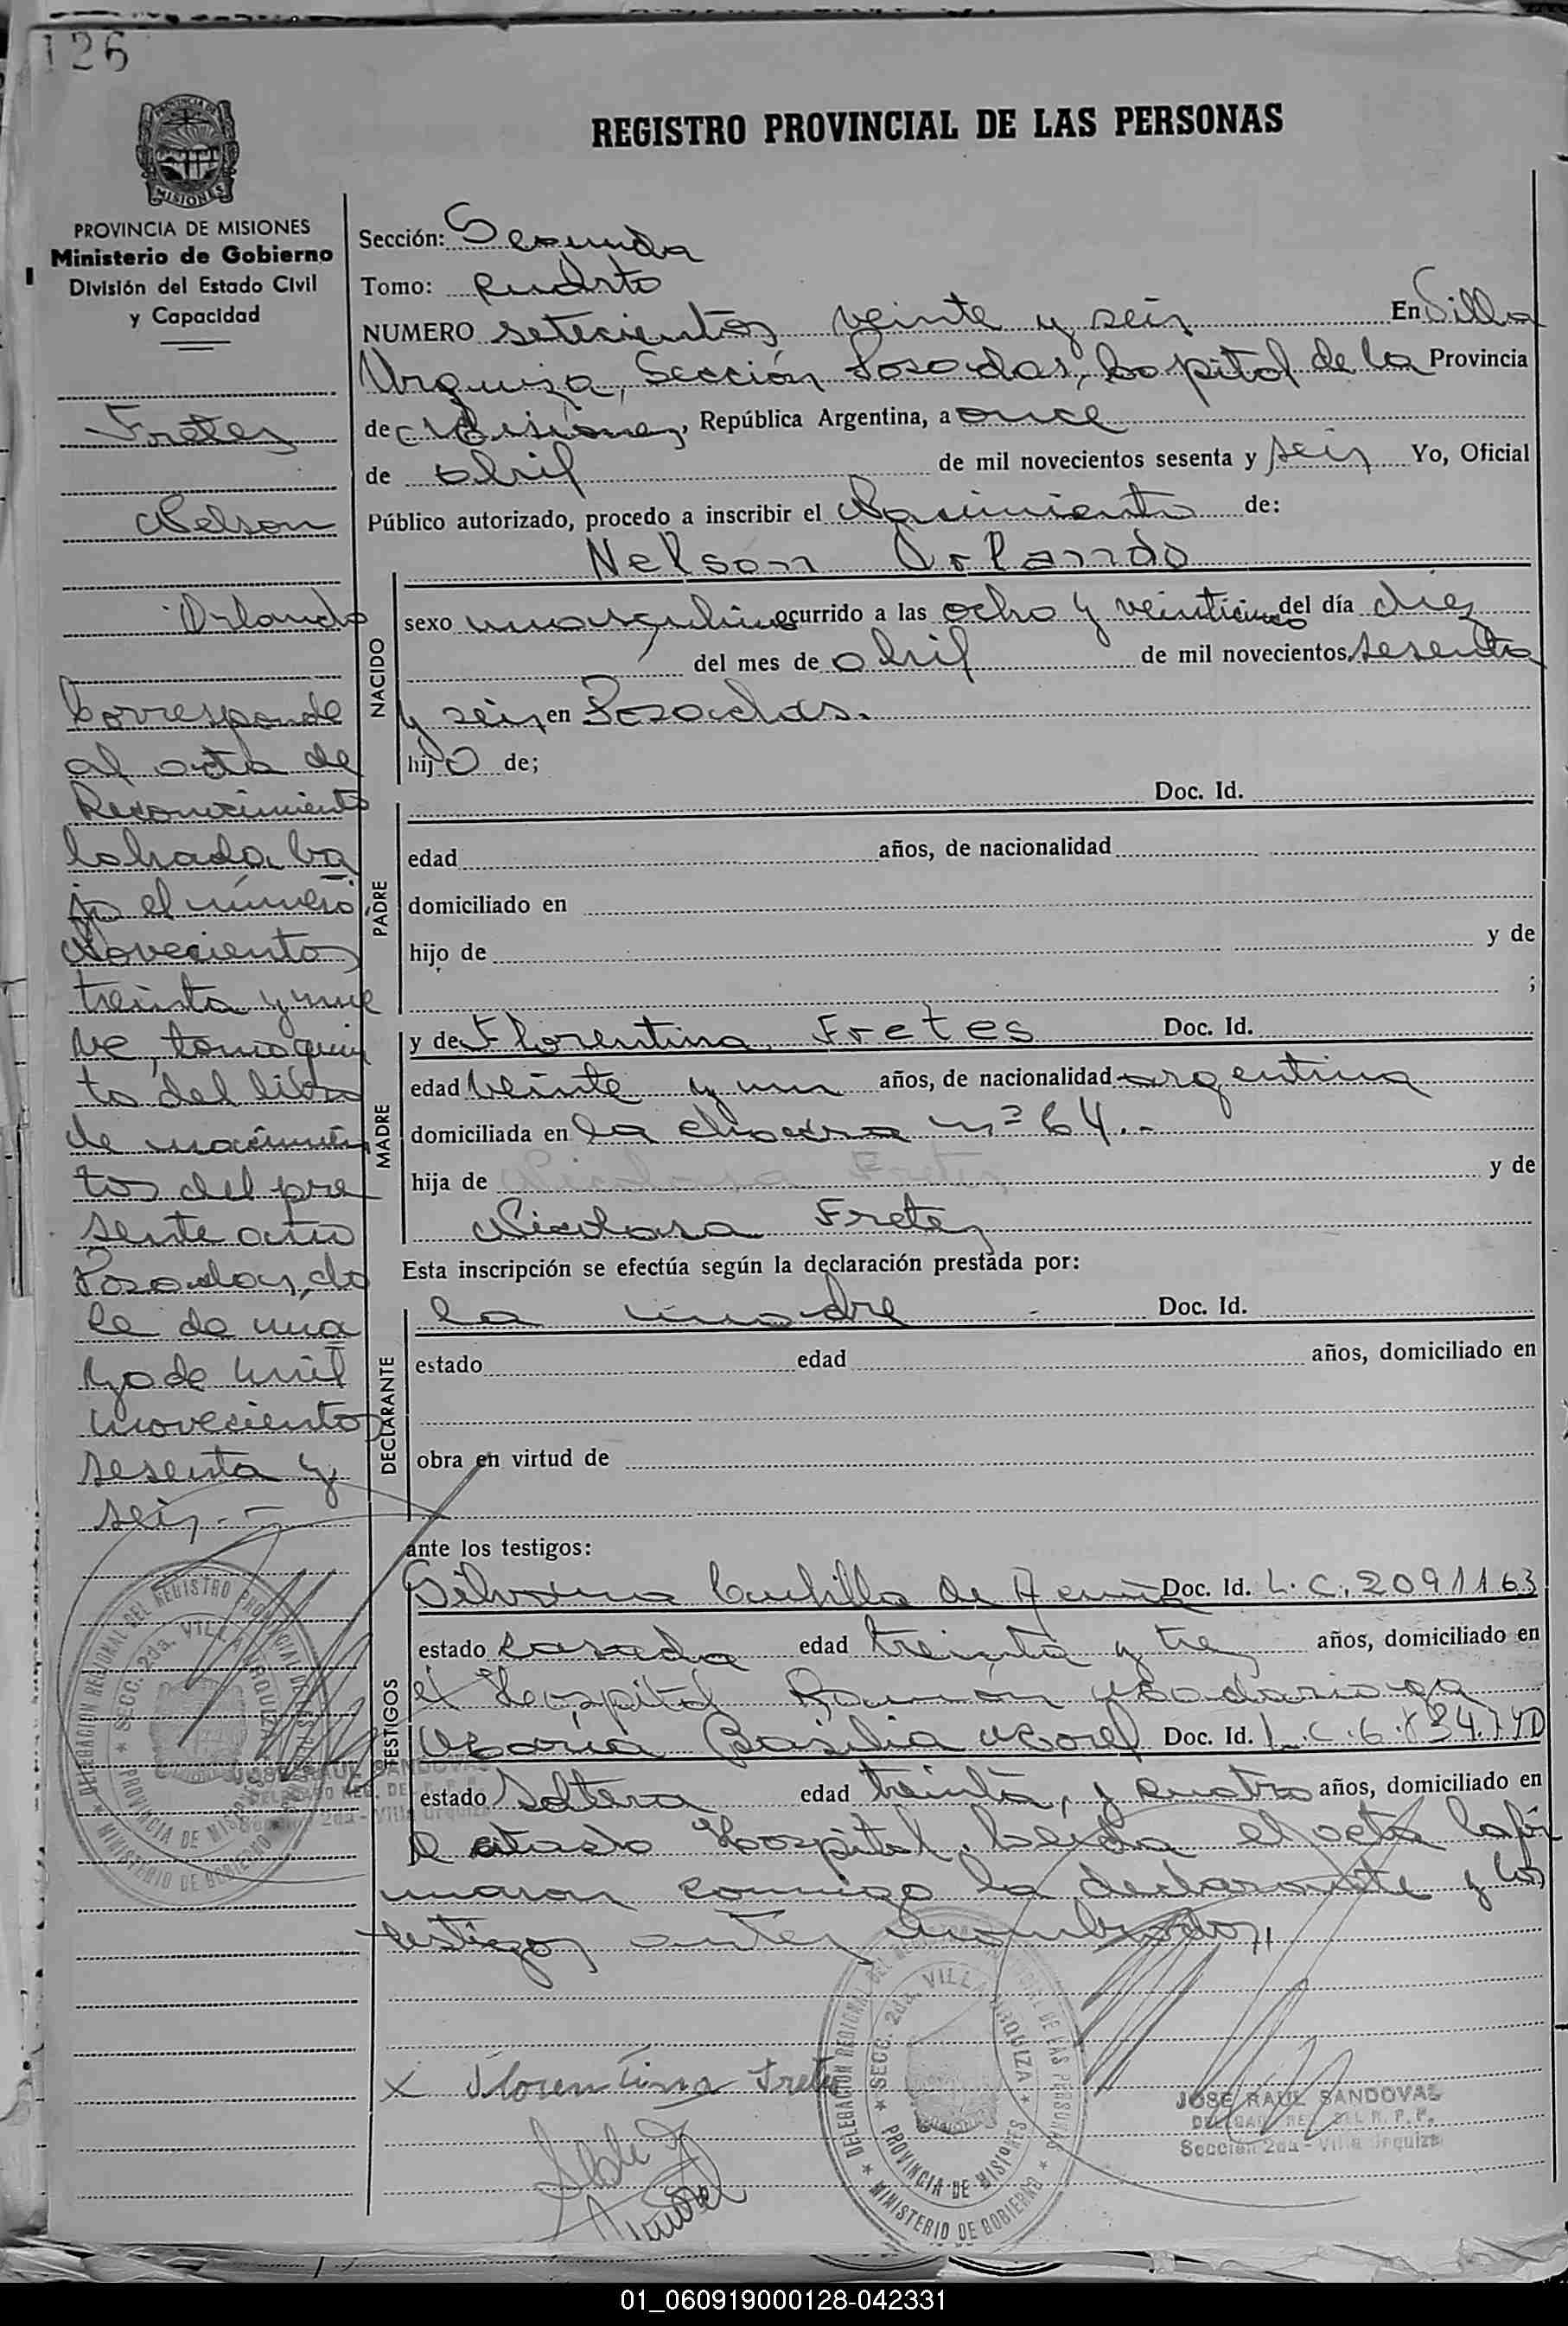 126
REGISTRO PROVINCIAL DE LAS PERSONAS
PROVINCIA DE
MISIONES
PROVINCIA DE MISIONES
Ministerio de Gobierno
División del Estado Civil
y Capacidad
Fretes
Nelson
Orlando
Corresponde
al acta de
Reconocimiento
labrada ba
jo el número
Novecientos
treinta y nue
ve, tomo quin
to del libro
de nacimien
tos del pre
sente año
Posadas, do
ce de ma
yo de mil
novecientos
sesenta y
seis.-
Sección: Segunda
Tomo: cuarto
NUMERO setecientos veinte y seis En Villa
Urquiza, Sección Posadas, Capital de la Provincia
de Misiones, República Argentina, a once
de abril de mil novecientos sesenta y seis Yo, Oficial
Público autorizado, procedo a inscribir el Nacimiento de:
Nelson Orlando
NACIDO
sexo masculino ocurrido a las ocho y veinticinco del día diez
del mes de abril de mil novecientos sesenta
y seis en Posadas.
hijo de;
Doc. Id.
PADRE
edad años, de nacionalidad
domiciliado en
hijo de y de
;
MADRE
y de Florentina Fretes Doc. Id.
edad veinte y un años, de nacionalidad argentina
domiciliada en la chacra nº 64.-
hija de Nicolasa Fretes y de
Nicolasa Fretes
Esta inscripción se efectúa según la declaración prestada por:
DECLARANTE
la madre Doc. Id.
estado edad años, domiciliado en
obra en virtud de
ante los testigos:
TESTIGOS
Silvana de Doc. Id. L.C. 2091163
estado casada edad treinta y tres años, domiciliado en
el Hospital Ramón Madariaga
María Basilia Doc. Id. L.C. 6.
estado Soltera edad treinta y cuatro años, domiciliado en
el citado Hospital. Leída el acta la fir
maron conmigo la declarante y los
testigos antes nombrados,,
x Florentina Fretes
DELEGACION REGIONAL DEL REGISTRO PROVINCIAL DE LAS PERSONAS
* SECC. 2da. VILLA URQUIZA *
PROVINCIA DE MISIONES
* MINISTERIO DE GOBIERNO *
JOSE RAUL SANDOVAL
DELEGADO REG. DEL R. P. P.
Sección 2da - Villa Urquiza
DELEGACION REGIONAL DEL REGISTRO PROVINCIAL DE LAS PERSONAS
* SECC. 2da. VILLA URQUIZA *
PROVINCIA DE MISIONES
* MINISTERIO DE GOBIERNO *
JOSE RAUL SANDOVAL
DELEGADO REG. DEL R. P. P.
Sección 2da - Villa Urquiza
01_060919000128-042331